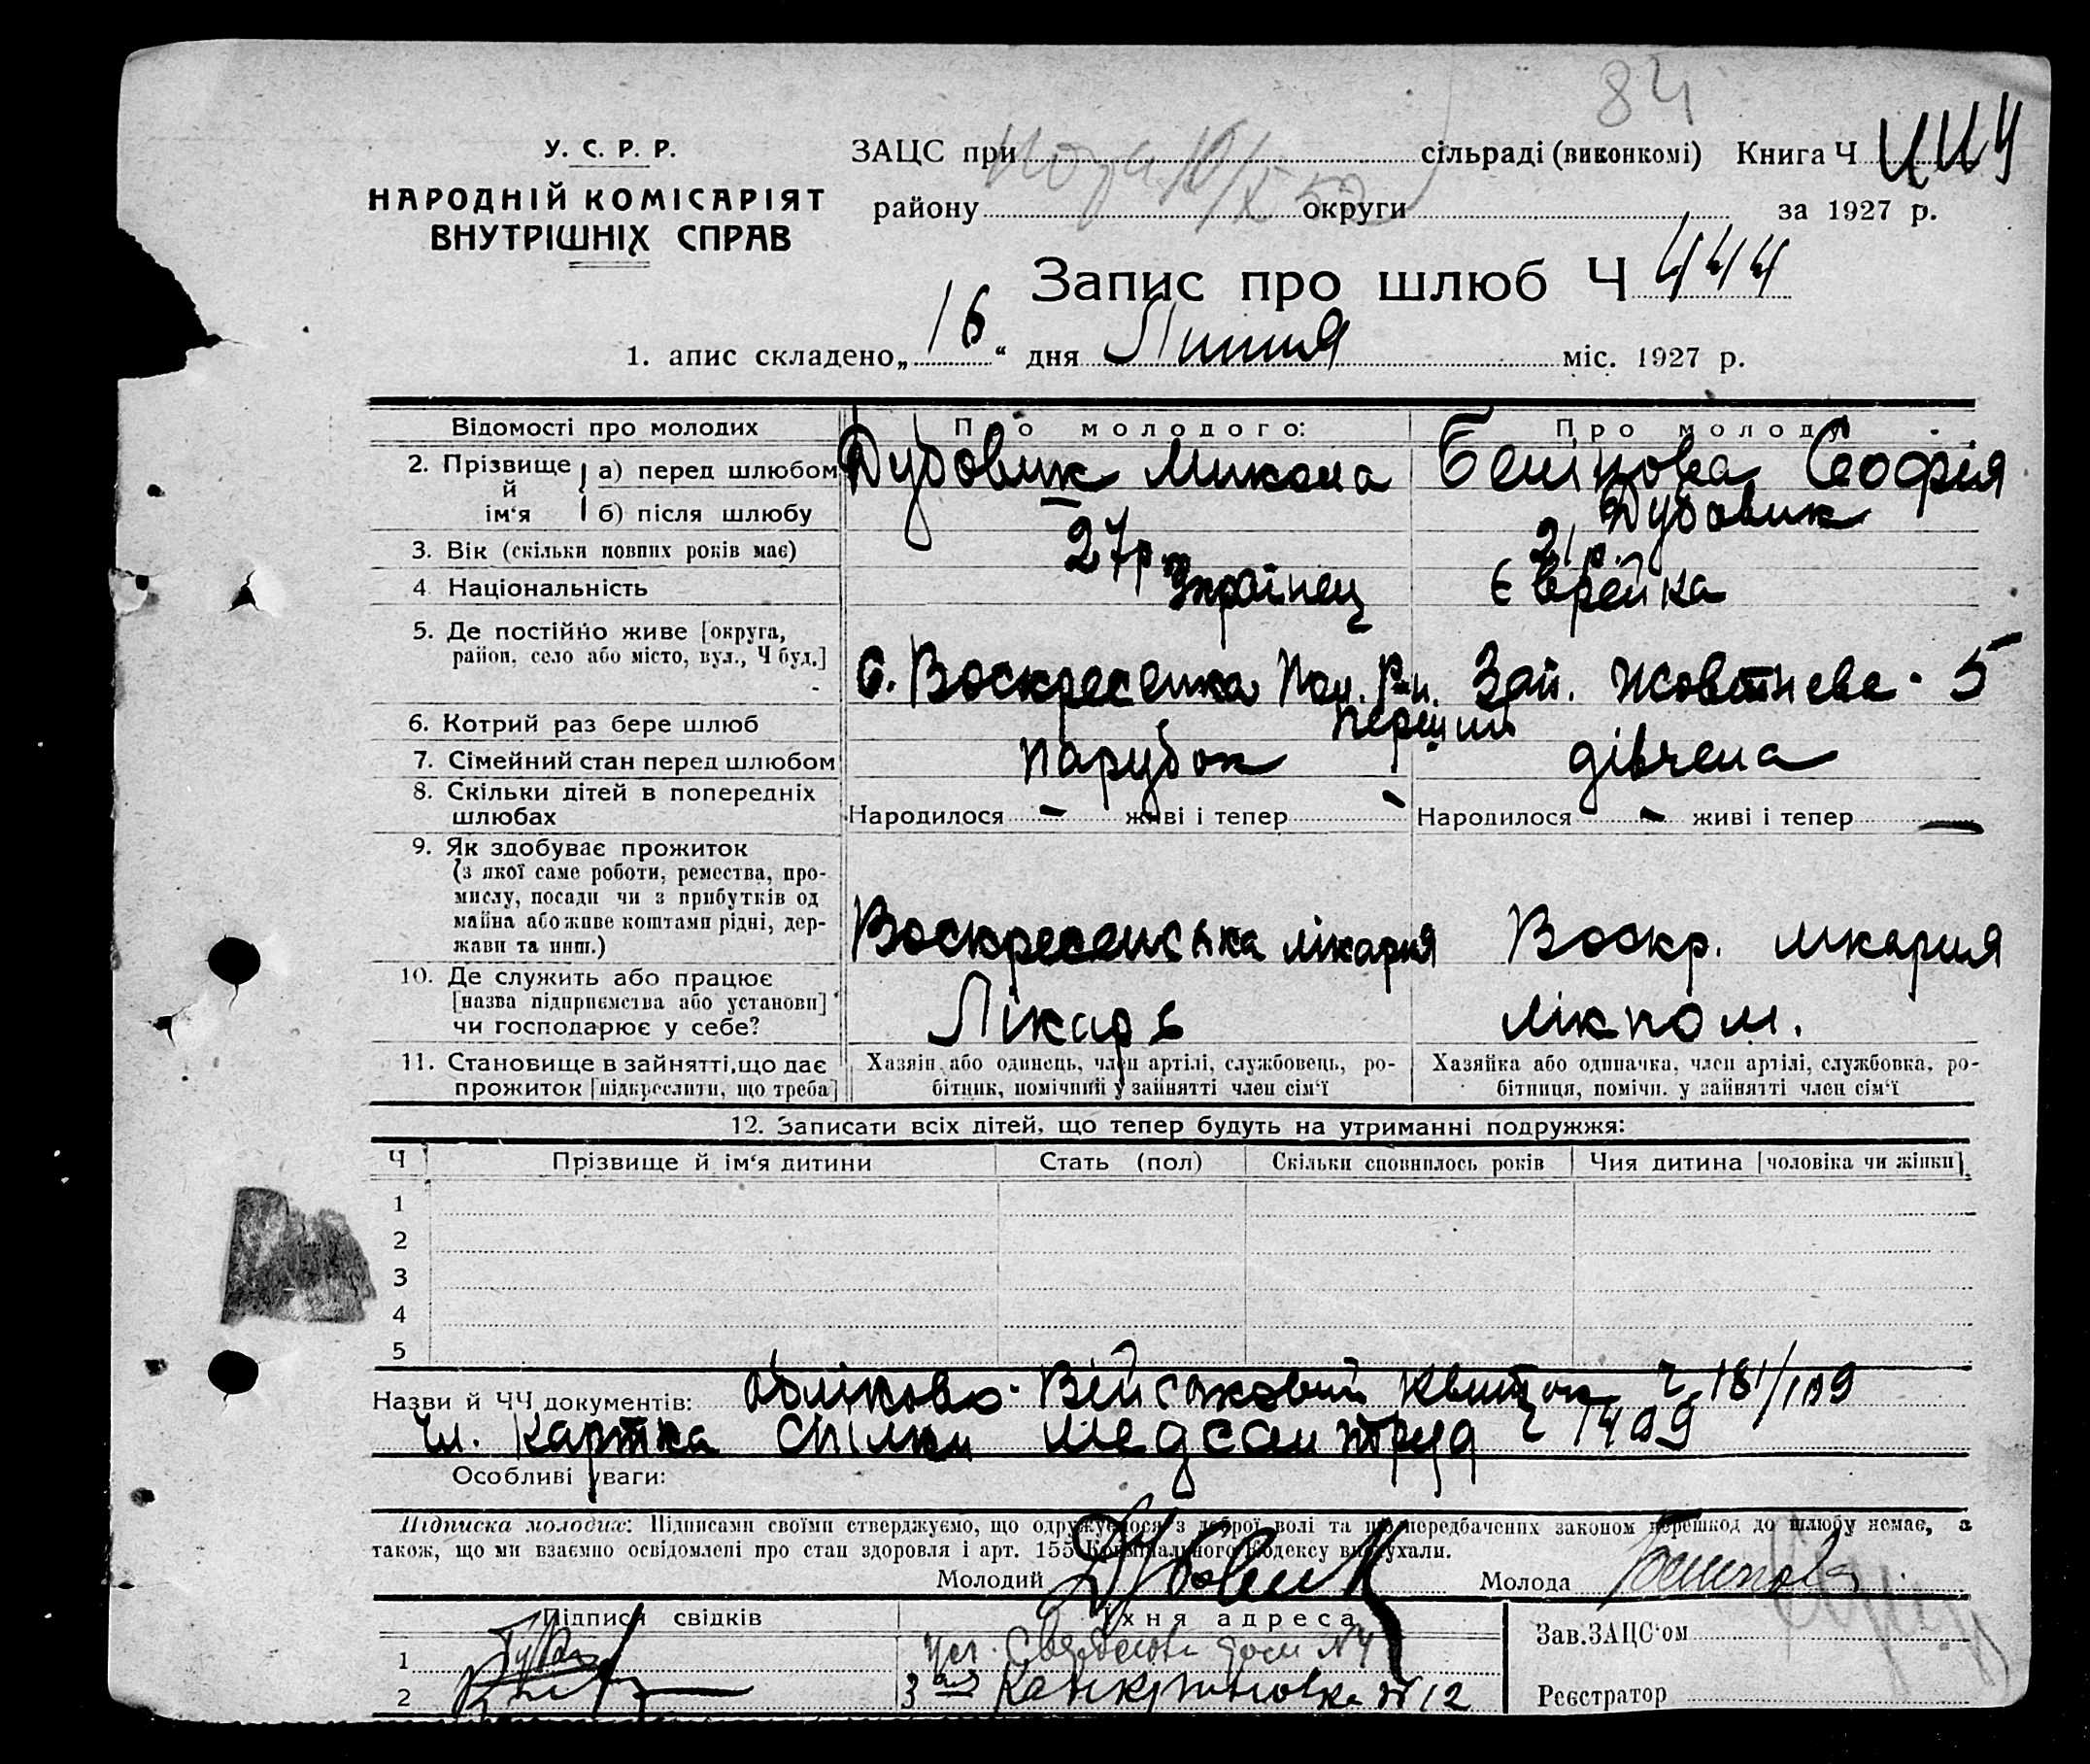 84
У. С. Р. Р.
НАРОДНІЙ КОМІСАРІЯТ
ВНУТРІШНІХ СПРАВ
ЗАЦС при сільраді (виконкомі) Книга Ч
району округи за 1927 р.
Запис про шлюб Ч 444
1. апис складено „16“ дня Липня міс. 1927 р.
Відомості про молодих П о молодого: Про молоду
2. Прізвище й ім‘я а) перед шлюбом Дубовик Микола Софія
б) після шлюбу Дубовик
3. Вік (скільки повних років має) 27р. 21р.
4 Національність Українец Єврейка
5. Де постійно живе [округа,
район, село або місто, вул., Ч буд.] С. Воскресенка Пол. Р-н. Зап. Жовтнева - 5
6. Котрий раз бере шлюб перший
7. Сімейний стан перед шлюбом парубок дівчена
8. Скільки дітей в попередніх
шлюбах Народилося — живі і тепер — Народилося — живі і тепер —
9. Як здобуває прожиток
(з якої саме роботи, ремества, про-
мислу, посади чи з прибутків од
майна або живе коштами рідні, дер-
жави та инш.) Воскресенська лікарня Воскр. лікарня
10. Де служить або працює
[назва підприємства або установи]
чи господарює у себе? Лікарь лікпом.
11. Становище в зайнятті, що дає Хазяін або одинець, член артілі, службовець, ро- Хазяйка або одиначка, член артілі, службовка, ро-
прожиток [підкреслити, що треба] бітник, помічний у зайнятті член сім‘ї бітниця, помічн. у зайнятті член сім‘ї
12. Записати всіх дітей, що тепер будуть на утриманні подружжя:
Ч Прізвище й ім‘я дитини Стать (пол) Скільки сповнилось років Чия дитина [чоловіка чи жінки]
1
2
3
4
5
Назви й ЧЧ документів: Обліково-Військовий квиток ч 181/109
Чл. картка спілки Медсантруд ч 1409
Особливі уваги:
Підписка молодих: Підписами своїми стверджуємо, що одружуємося з доброї волі та що передбачених законом перешкод до шлюбу немає, а
також, що ми взаємно освідомлені про стан здоровля і арт. 155 Кримінального Кодексу вислухали.
Молодий Дубовик Молода
Підписи свідків Їхня адреса
1 дом №4
2 № 12
Зав. ЗАЦС‘ом
Реєстратор